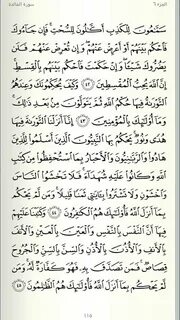 الجزء ٦
سورة المائدة
سَمَّاعُونَ لِلْكَذِبِ أَكَّالُونَ لِلسُّحْتِ فَإِن جَاءُوكَ
فَاحْكُم بَيْنَهُمْ أَوْ أَعْرِضْ عَنْهُمْ وَإِن تُعْرِضْ عَنْهُمْ فَلَن
يَضُرُّوكَ شَيْئًا وَإِنْ حَكَمْتَ فَاحْكُم بَيْنَهُم بِالْقِسْطِ
إِنَّ اللَّهَ يُحِبُّ الْمُقْسِطِينَ ٤٢ وَكَيْفَ يُحَكِّمُونَكَ وَعِندَهُمُ
التَّوْرَاةُ فِيهَا حُكْمُ اللَّهِ ثُمَّ يَتَوَلَّوْنَ مِن بَعْدِ ذَٰلِكَ
وَمَا أُولَٰئِكَ بِالْمُؤْمِنِينَ ٤٣ إِنَّا أَنزَلْنَا التَّوْرَاةَ فِيهَا
هُدًى وَنُورٌ يَحْكُمُ بِهَا النَّبِيُّونَ الَّذِينَ أَسْلَمُوا لِلَّذِينَ
هَادُوا وَالرَّبَّانِيُّونَ وَالْأَحْبَارُ بِمَا اسْتُحْفِظُوا مِن كِتَابِ
اللَّهِ وَكَانُوا عَلَيْهِ شُهَدَاءَ فَلَا تَخْشَوُا النَّاسَ
وَاخْشَوْنِ وَلَا تَشْتَرُوا بِآيَاتِي ثَمَنًا قَلِيلًا وَمَن لَّمْ يَحْكُم
بِمَا أَنزَلَ اللَّهُ فَأُولَٰئِكَ هُمُ الْكَافِرُونَ ٤٤ وَكَتَبْنَا عَلَيْهِمْ
فِيهَا أَنَّ النَّفْسَ بِالنَّفْسِ وَالْعَيْنَ بِالْعَيْنِ وَالْأَنفَ
بِالْأَنفِ وَالْأُذُنَ بِالْأُذُنِ وَالسِّنَّ بِالسِّنِّ وَالْجُرُوحَ
قِصَاصٌ فَمَن تَصَدَّقَ بِهِ فَهُوَ كَفَّارَةٌ لَّهُ وَمَن
لَّمْ يَحْكُم بِمَا أَنزَلَ اللَّهُ فَأُولَٰئِكَ هُمُ الظَّالِمُونَ ٤٥
١١٥